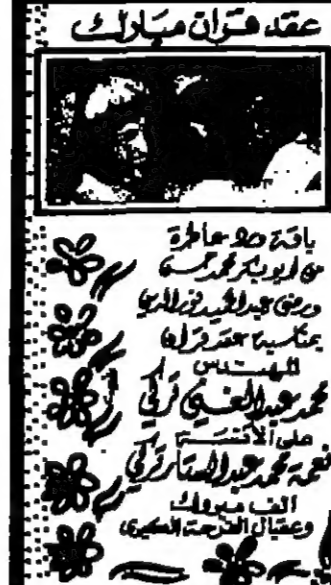 عقد قران مبارك
باقة ورد عاطرة
من ابوبكر محمد حسن
ورضى عبدالحميد نورالدين
بمناسبة عقد قران
المهندس
محمد عبدالغني تركي
على الآنسة
نعمة محمد عبدالستار تركي
الف مبروك
وعقبال الفرحة الكبرى